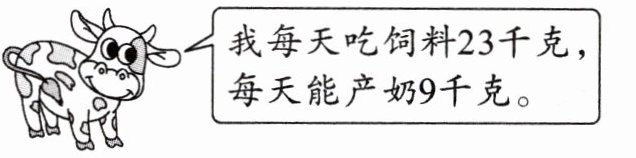 我每天吃饲料23千克，
每天能产奶9千克。